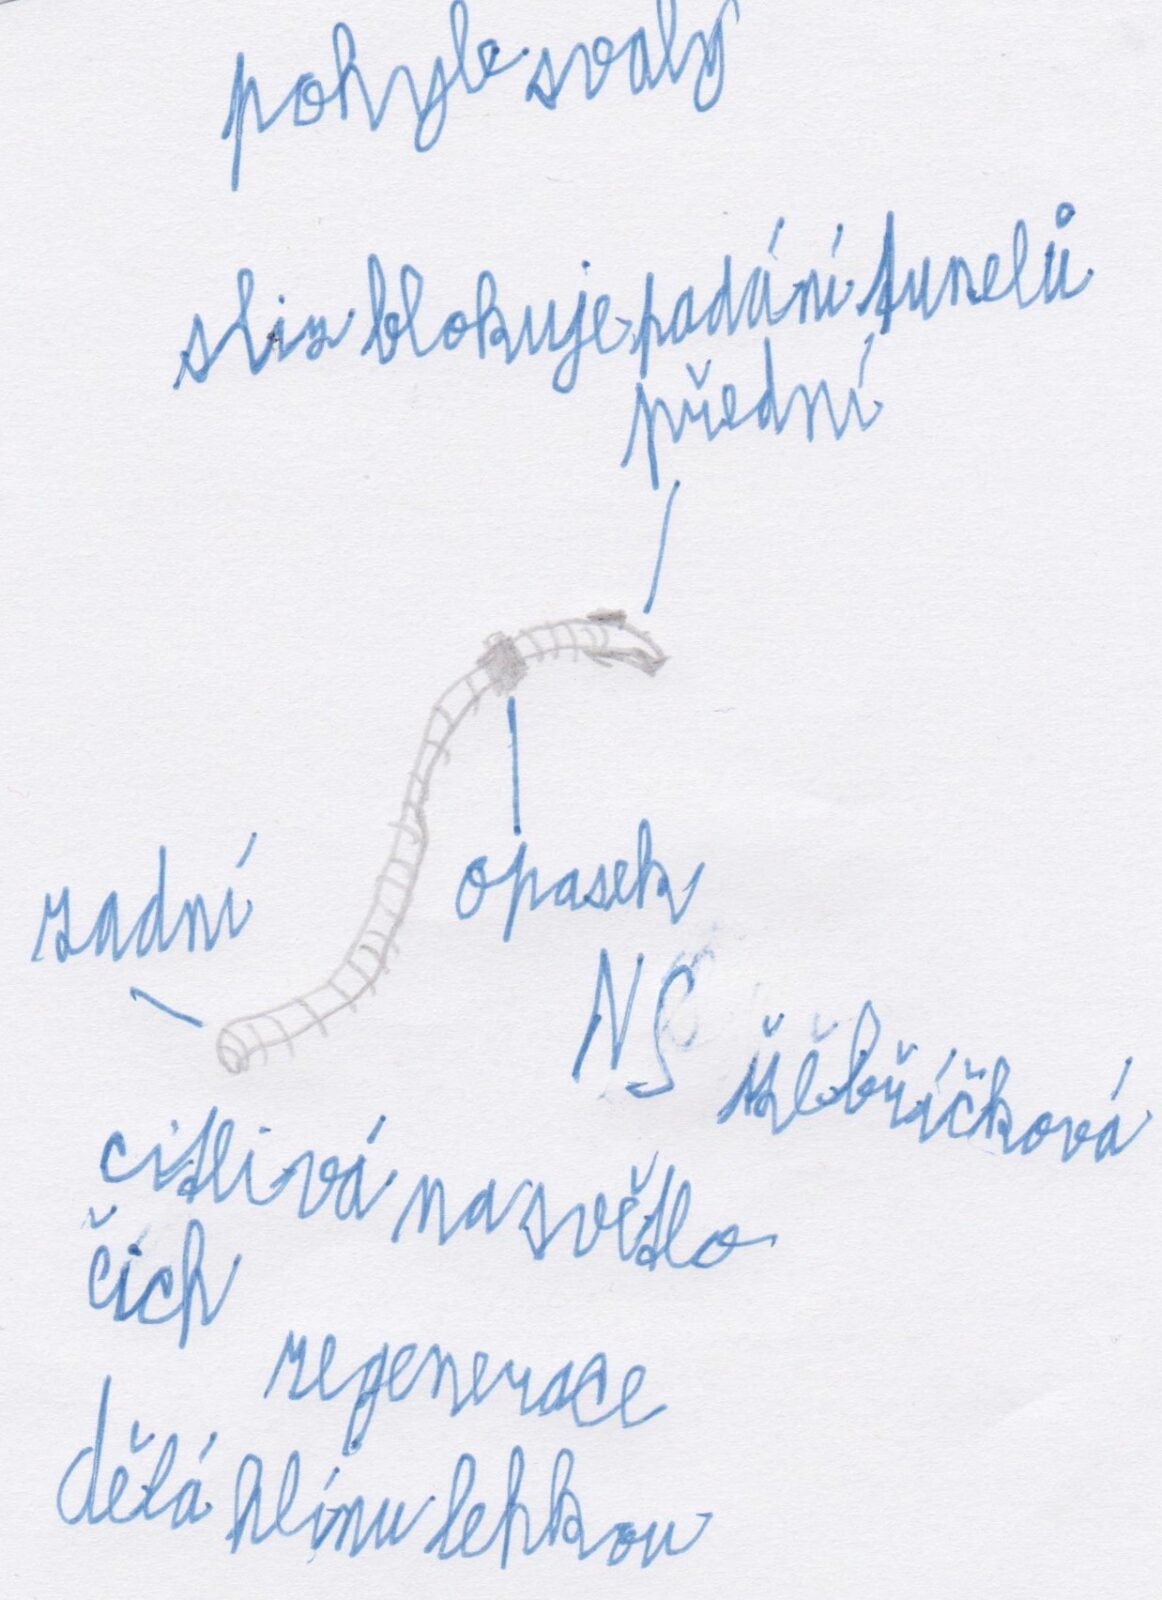 pohyb svaly
sliz blokuje padání tunelů
přední
zadní
opasek
NS žebříčková
citlivá na světlo
čich
regenerace
dělá hlínu lehkou